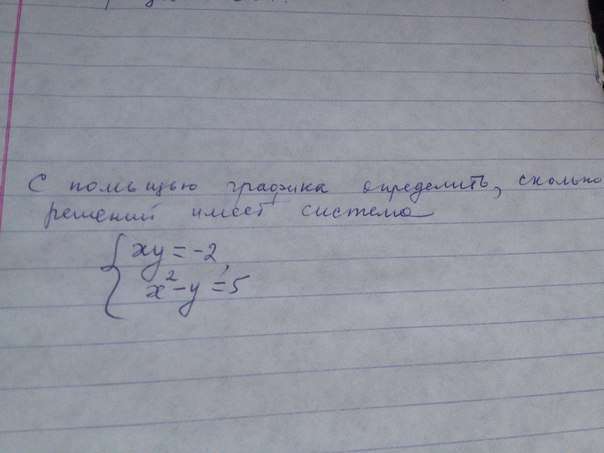 С помощью графика определить, сколько
решений имеет система
{ xy = -2,
x² - y = 5